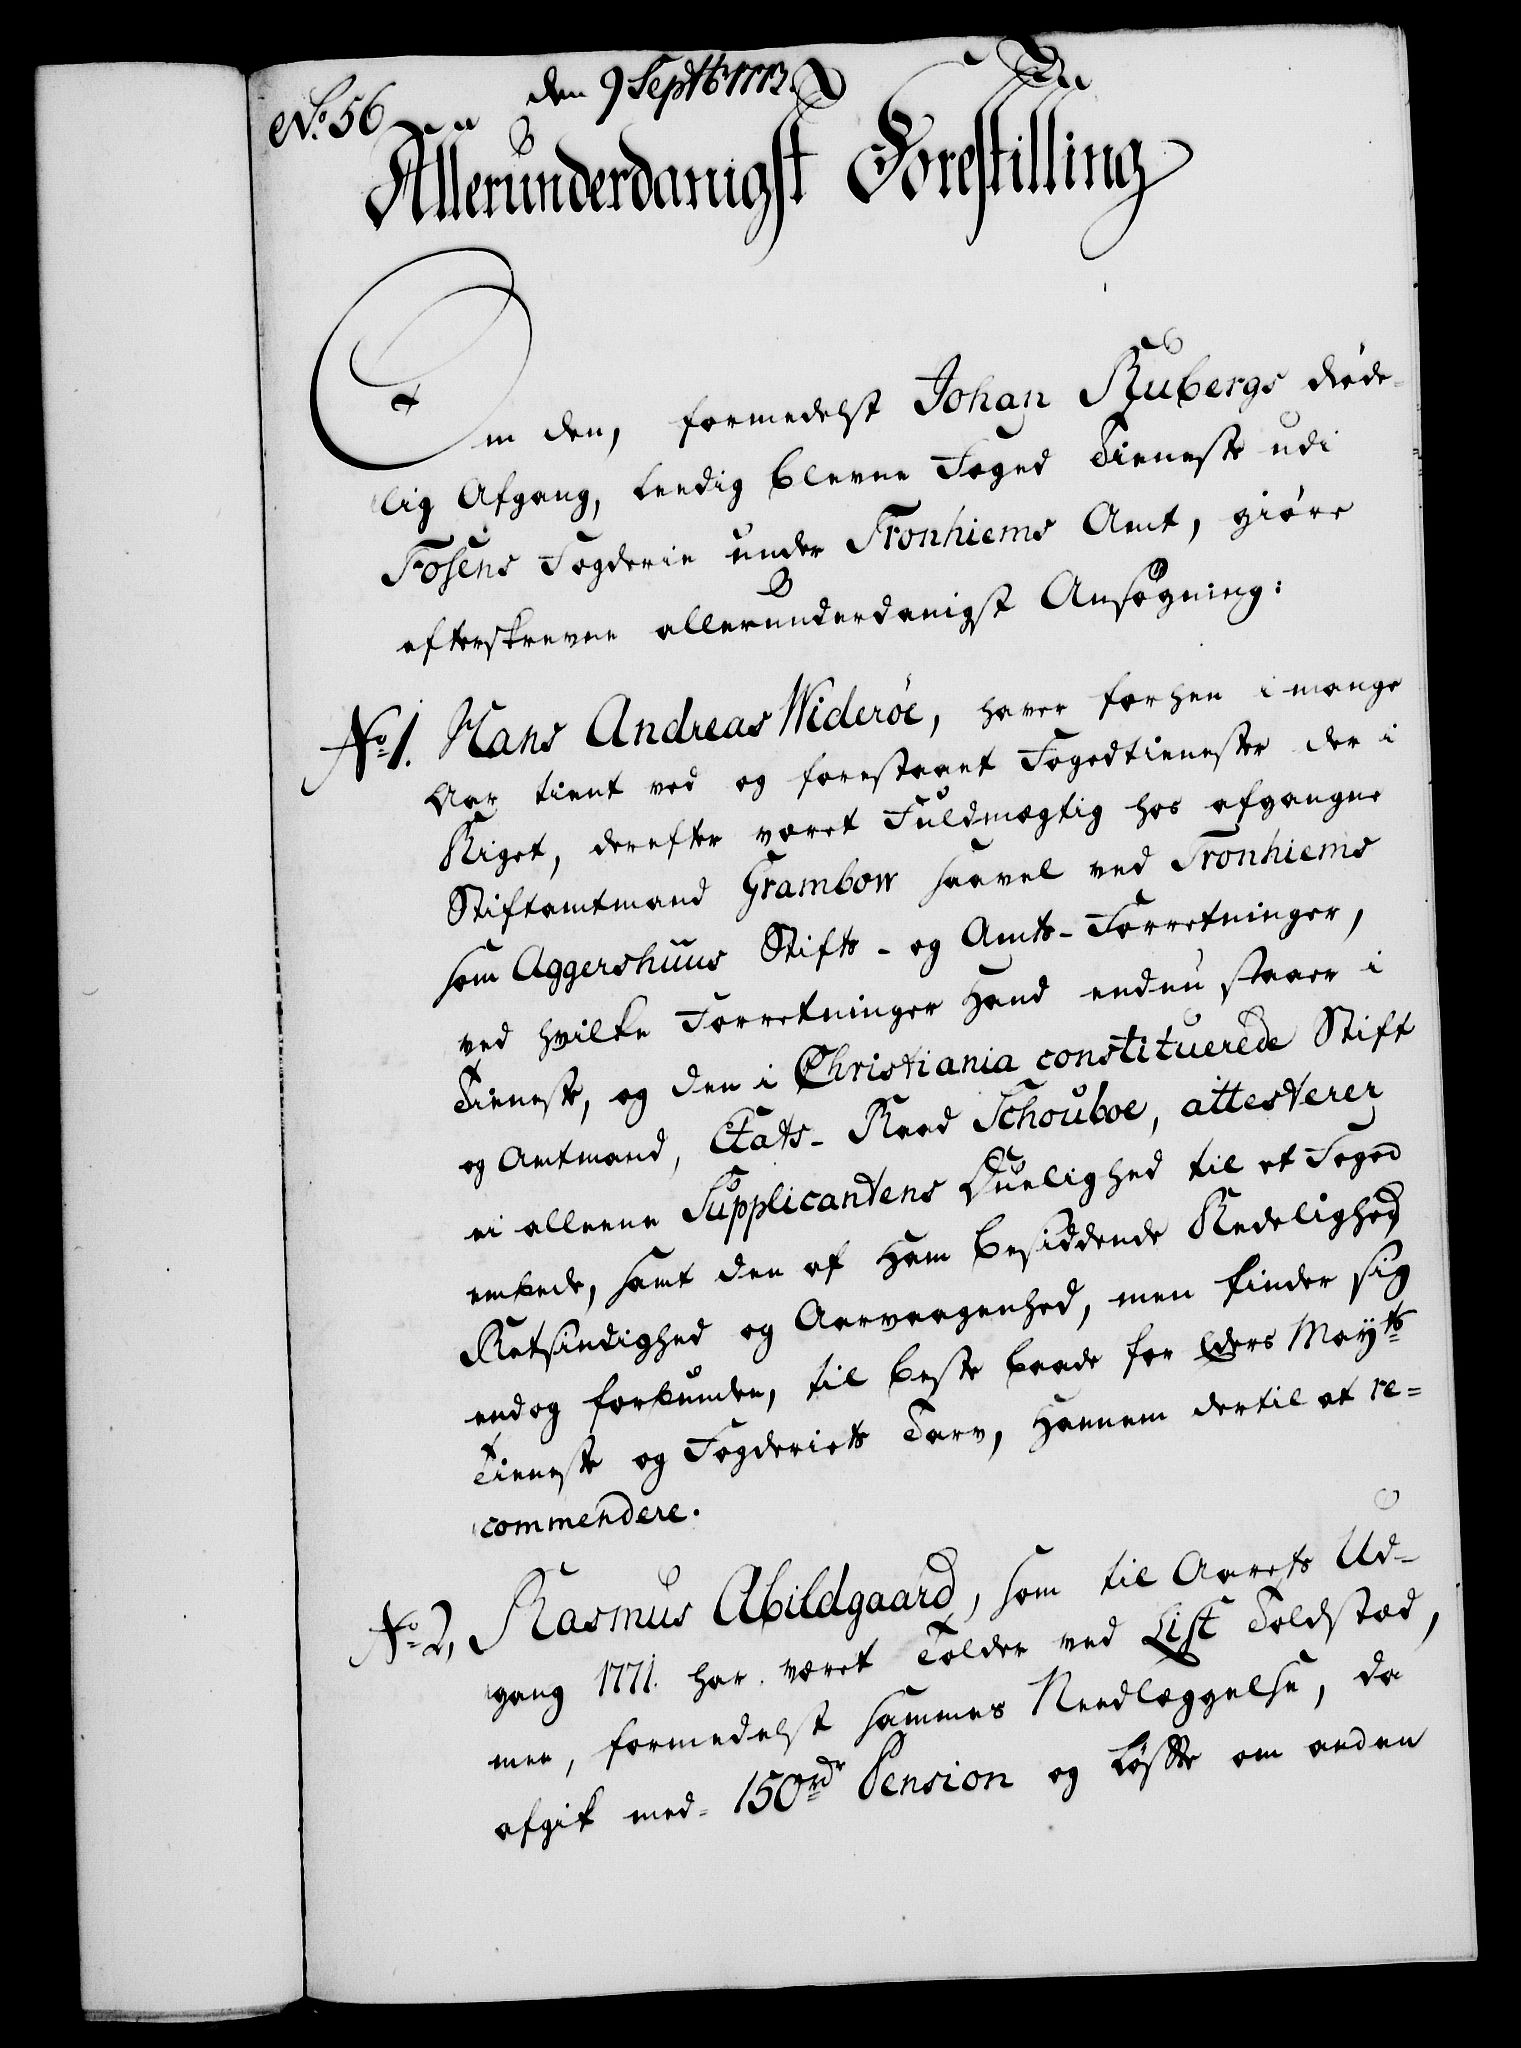 No. 56
den 9 Septbr 1773.
Allerunderdanigst Forestilling
Om den, formedelst Johan Rubergs døde-
lig Afgang, leedig blevne Foged Tieneste udi
Fosens Fogderie under Tronhiems Amt, giøre
efterskrevne allerunderdanigst Ansøgning:
No. 1. Hans Andreas Widerøe, haver forhen i mange
Aar tient ved og forestaaet Fogedtienester der i
Riget, derefter været Fuldmægtig hos afgangne
Stiftamtmand Grambow saavel ved Tronhiems
som Aggershuus Stifts- og Amts-Forretninger,
ved hvilke Forretninger Hand endnu staaer i
Tieneste, og den i Christiania constituerede Stift
og Amtmand, Etats-Raad Schouboe, attesterer
ei alleene Supplicantens Duelighed til et Foged
embede, samt den af Ham besiddende Redelighed
Retsindighed og Aarvaagenhed, men finder sig
endog forbunden, til beste baade for Eders Mayts
Tieneste og Fogderiets Tarv, Hannem dertil at re-
commendere.
No. 2, Rasmus Abildgaard, som til Aarets Ud-
gang 1771. har været Tolder ved List Toldsted,
men, formedelst sammes Needlæggelse, da
afgik med 150 rdr Pension og Løfte om anden